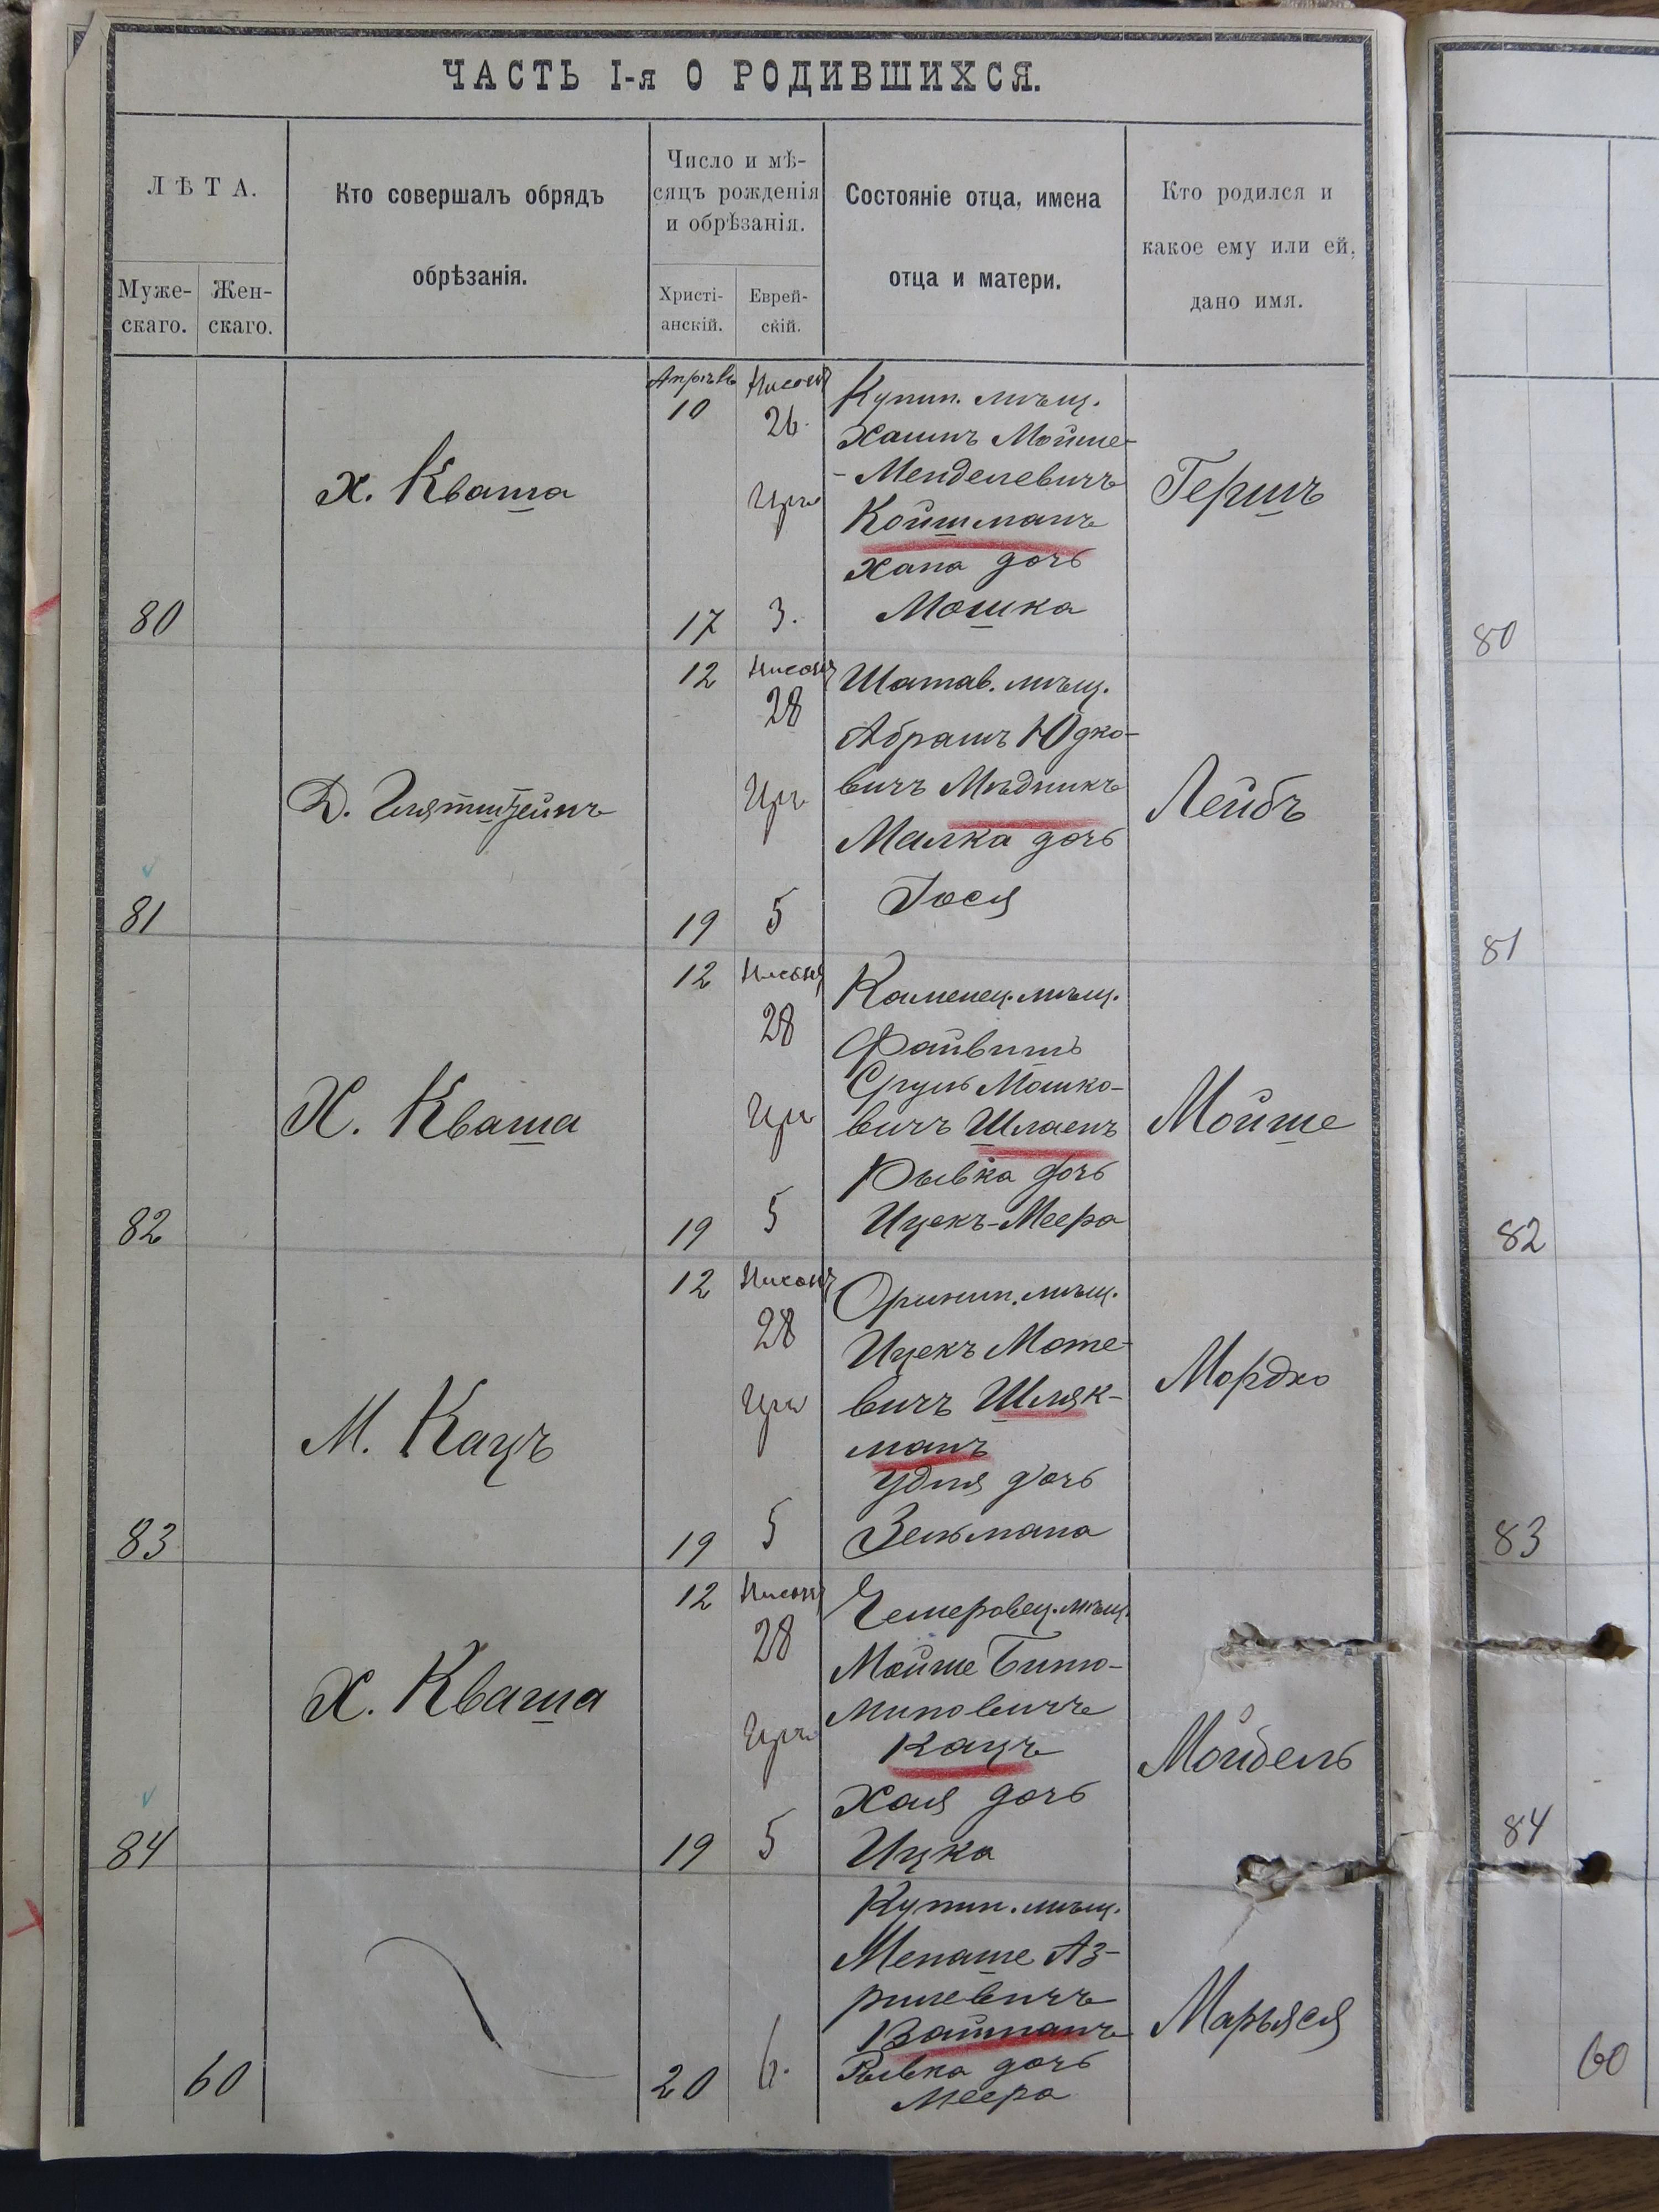 ЧАСТЬ I-я О РОДИВШИХСЯ.
ЛѢТА.
Муже-
скаго.
Жен-
скаго.
Кто совершалъ обрядъ
обрѣзанія.
Число и мѣ-
сяцъ рожденія
и обрѣзанія.
Христі-
анскій.
Еврей-
скій.
Состояніе отца, имена
отца и матери.
Кто родился и
какое ему или ей,
дано имя.
80
Х. Кваша
Апрѣль
10
17
Нисонъ
26.
Иръ
3.
Купин. мѣщ.
Хаимъ Мойше-
-Менделевичъ
Койшманъ
Хана дочь
Мошка
Гершъ
80
81
12
19
Нисонъ
28
Иръ
5
Шатав. мѣщ.
Абрамъ Юдко-
вичъ Мѣдникъ
Малка дочь
Іося
Лейбъ
81
82
Х. Кваша
12
19
Нисонъ
28
Иръ
5
Каменец. мѣщ.
Файвишъ
Сруль Мошко-
вичъ Шлаенъ
Рывка дочь
Ицекъ-Меера
Мойше
82
83
М. Кацъ
12
19
Нисонъ
28
Иръ
5
Оринин. мѣщ.
Ицекъ Моте-
вичъ Шляк-
манъ
Удля дочь
Зельмана
Мордко
83
84
Х. Кваша
12
19
Нисонъ
28
Иръ
5
Чемеровец. мѣщ.
Мойше Биню-
миновичъ
Кацъ
Хая дочь
Ицка
Мойбель
84
60
20
6.
Купин. мѣщ.
Менаше Аз-
рилевичъ
Вайтманъ
Рывка дочь
Меера
Марьяся
60